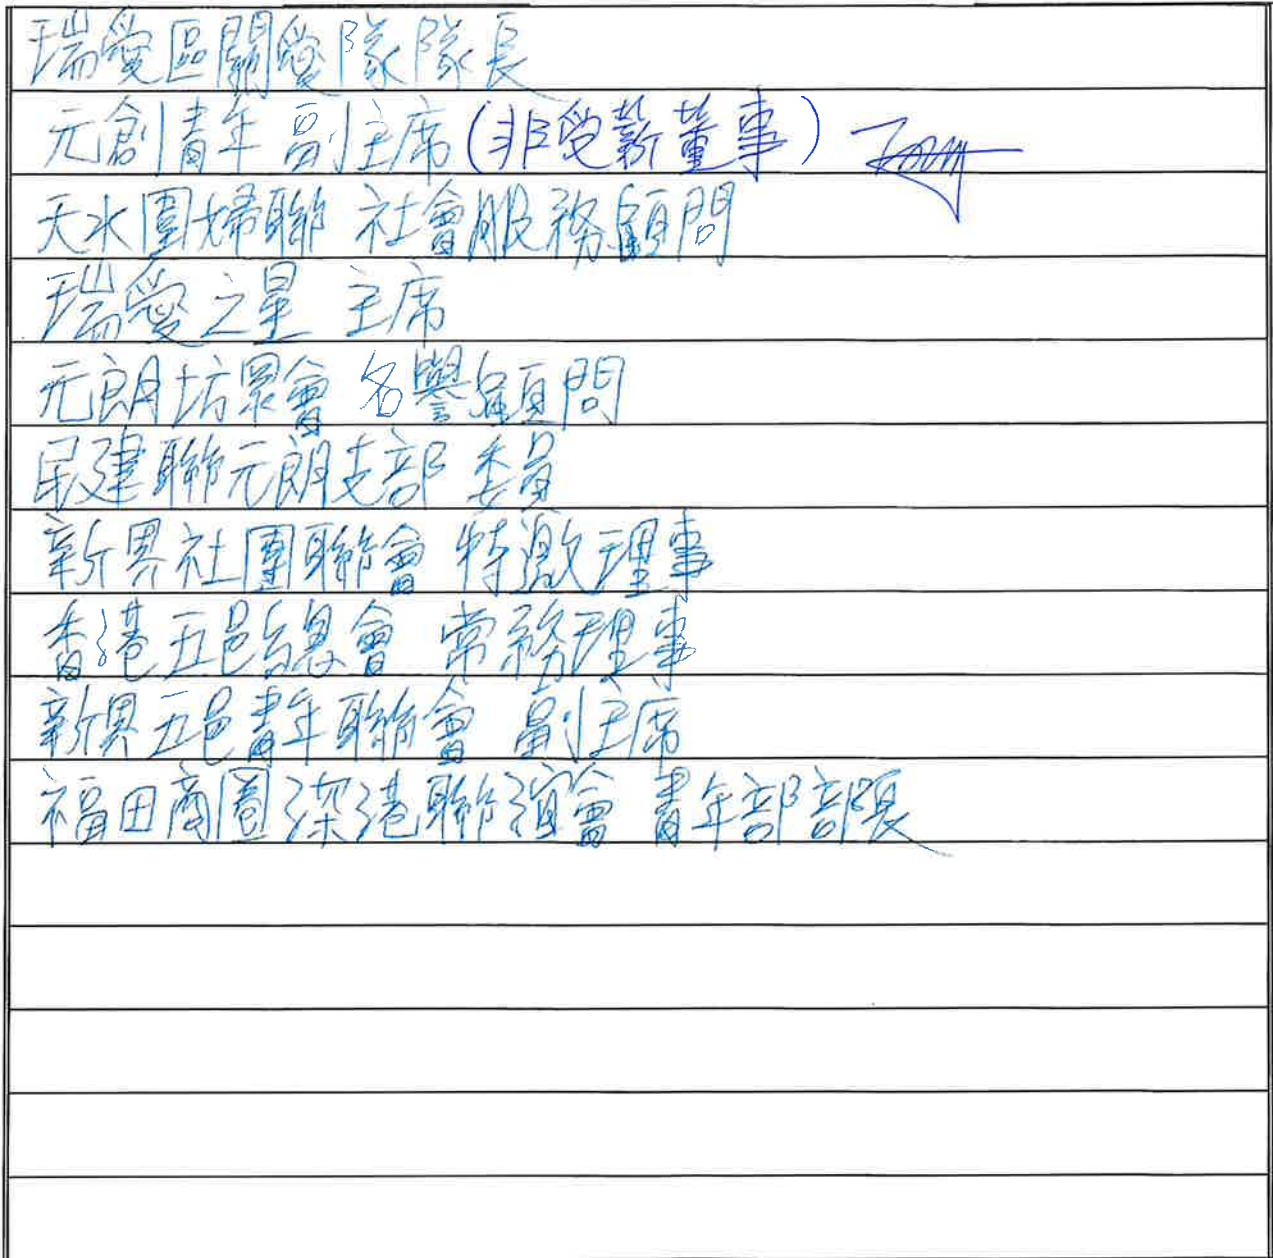 瑞愛區關愛隊隊長
元創青年 副主席(非受薪董事)
天水圍婦聯 社會服務顧問
瑞愛之星 主席
元朗坊眾會 名譽顧問
民建聯元朗支部 委員
新界社團聯會 特邀理事
香港五邑總會 常務理事
新界五邑青年聯會 副主席
福田商圈深港聯誼會 青年部部長